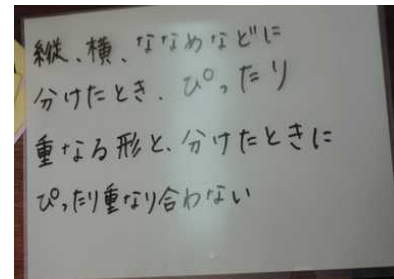 縦、横、ななめなどに
分けたとき、ぴったり
重なる形と、分けたときに
ぴったり重なり合わない